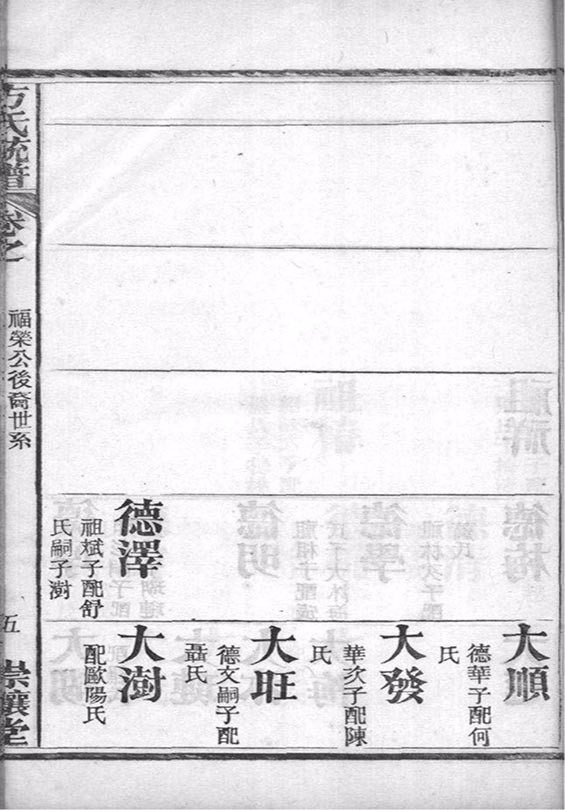 大順
德華子配何
氏
大發
華次子配陳
氏
大旺
德文嗣子配
聶氏
德澤
祖斌子配舒
氏嗣子澍
大澍
配歐陽氏
方氏統譜
卷之
福榮公後裔世系
五
崇讓堂